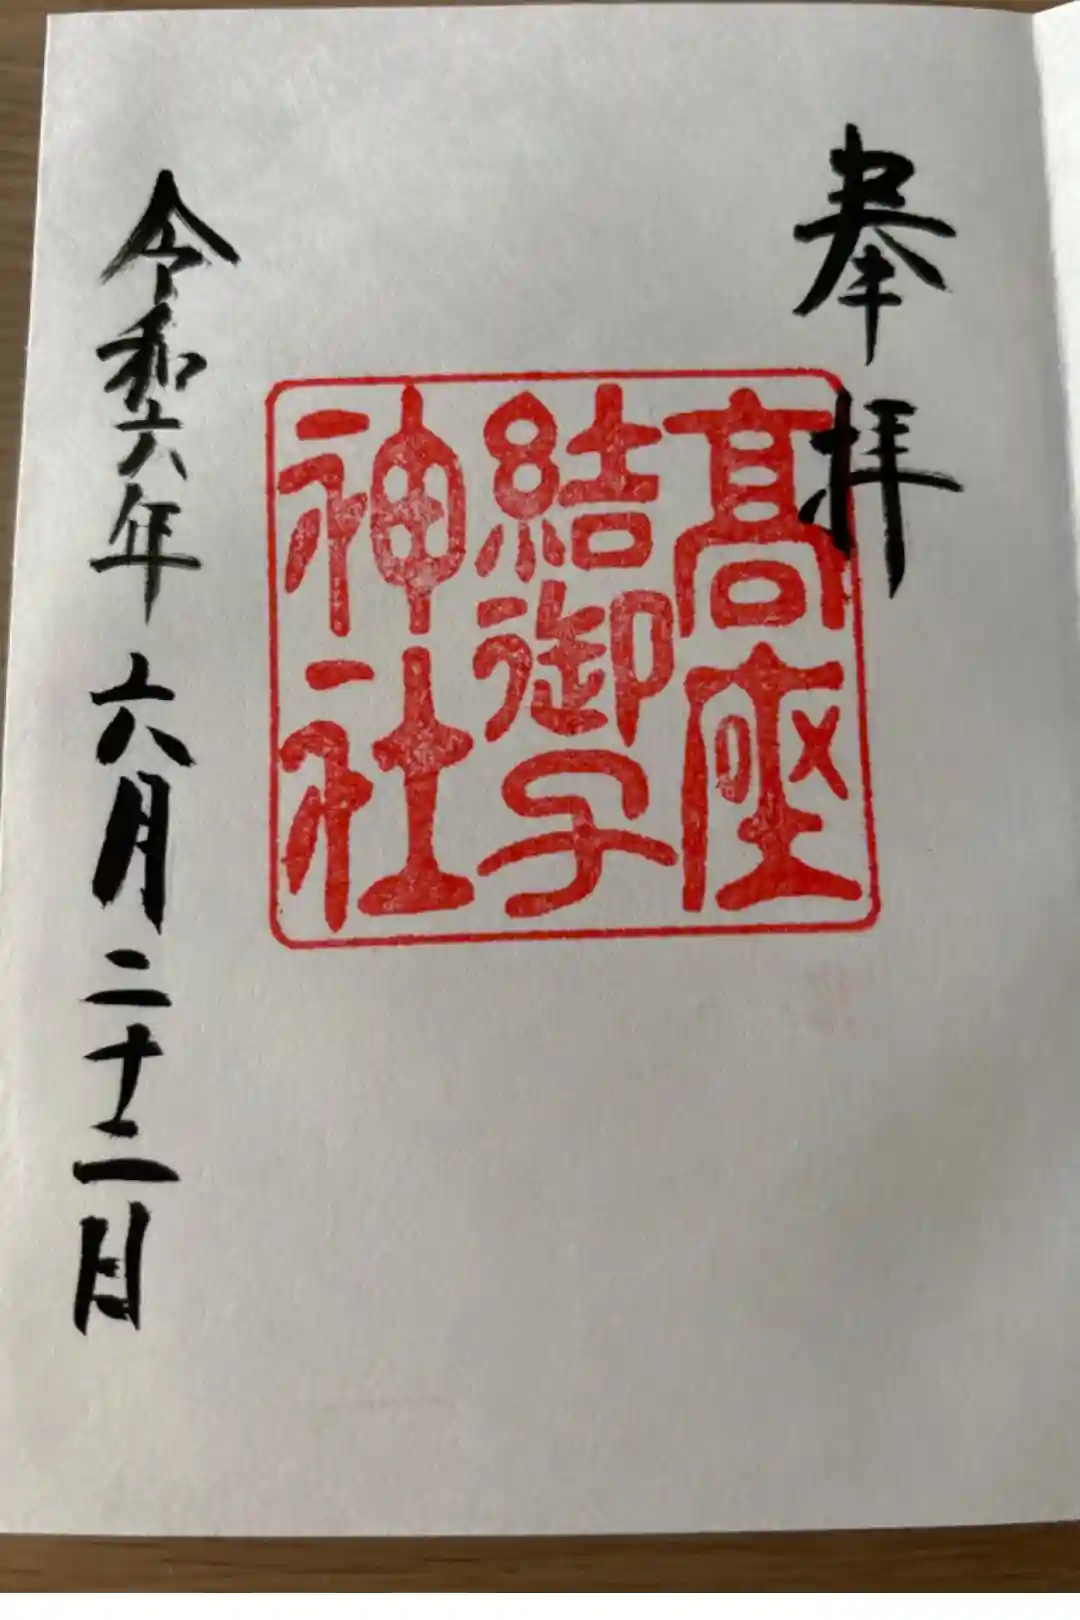 奉拝
髙座
結御子
神社
令和六年六月二十二日